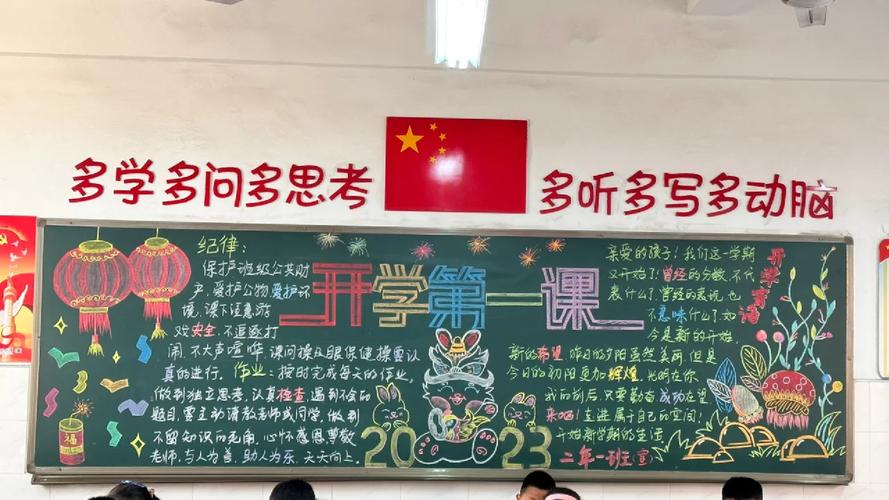 多学多问多思考
多听多写多动脑
纪律:
保护班级公共财
产,爱护公物爱护环
境,课下注意游
戏安全,不追逐打
闹,不大声喧哗,课间操及眼保健操要认
真的进行。作业:按时完成每天的作业,
做到独立思考,认真检查,遇到不会的
题目,要主动请教老师或同学,做到
不留知识的死角,心怀感恩尊敬
老师,与人为善,助人为乐,天天向上。
开学第一课
2023
福
亲爱的孩子!我们这一学期
又开始了!曾经的分数,不代
表什么了,曾经的表现,也
不意味什么了,如
今是新的开始,
新的希望,昨日的夕阳虽然美丽,但是
今日的初阳更加辉煌,光明在你
我的前后,只要勤奋,成功在望
来吧!走进属于自己的空间!
开始新学期的生活
二年一班(宣)
开学寄语